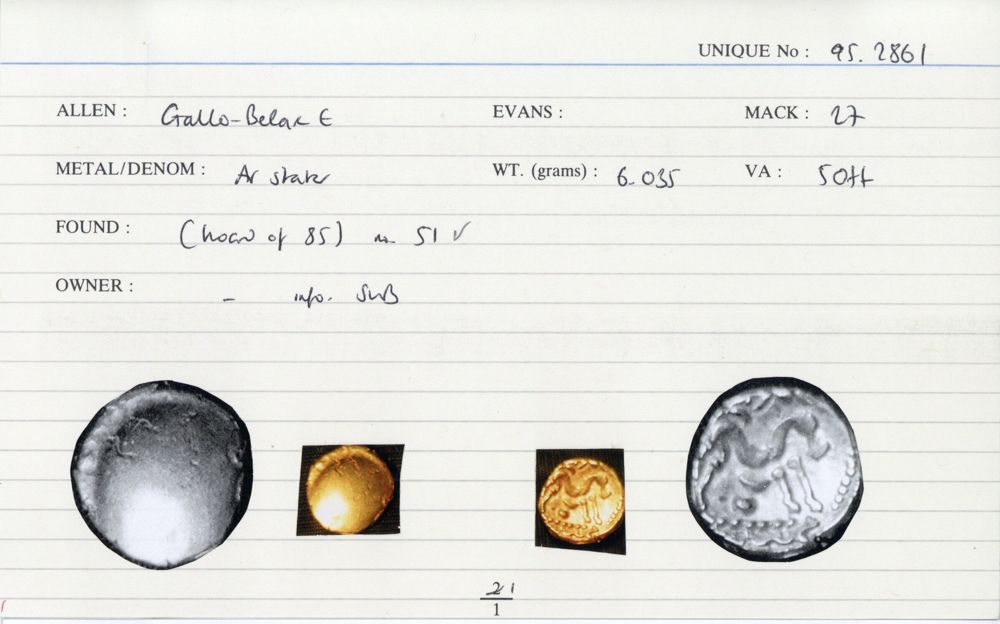 UNIQUE No : 95. 2861
ALLEN : Gallo-Belgic E EVANS : MACK : 27
METAL/DENOM : Av stater WT. (grams) : 6.035 VA :
FOUND : (hoard of 85) no 51 ✓
OWNER : - info. SWB
21
1